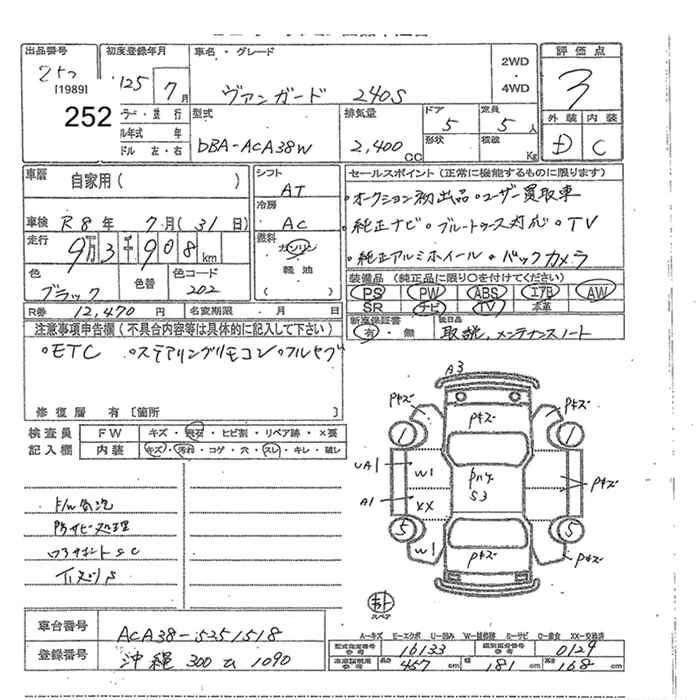 出品番号 初度登録年月 車名・グレード 2WD・4WD 評価点
252 [1989] 25年 7月 ヴァンガード 240S 3
252
型式 排気量 ドア 定員 外装 内装
DBA-ACA38W 2,400cc 5 5人 D C
形状 積載 Kg
ドル 左・右
車歴 自家用( ) シフト AT
セールスポイント(正常に機能するものに限ります)
・オークション初出品・ユーザー買取車
車検 R8年 7月(31日) 冷房 AC
純正ナビ・ブルートゥース対応・TV
走行 9万3千908km 燃料 ガソリン 軽油 ( )
・純正アルミホイール・バックカメラ
色 ブラック 色替 色コード 202
装備品(純正品に限り○を付けてください)
PS PW ABS エアB AW
SR ナビ TV 本革
R券 12,470円 名変期限 ・月 日
新車保証書 有・無 後日品 取説、メンテナンスノート
注意事項申告欄(不具合内容等は具体的に記入して下さい)
・ETC ・ステアリングリモコン・フルセグ
修復歴 有[箇所
検査員 FW キズ・飛石・ヒビ割・リペア跡・×要
記入欄 内装 キズ・汚れ・コゲ・穴・スレ・キレ・破レ
防サビ処理
A3
Pキズ Pキズ Pキズ
1 1
UA1 W1 Pハゲ S3
A1 XX Pキズ
5 5
W1 Pキズ Pキズ
スペア
車台番号 ACA38-5251518
登録番号 沖縄 300 ひ 1090
A-キズ E-エクボ U-凹み W-補修跡 S-サビ C-腐食 XX-交換済
型式指定番号 参考 16133 類別区分番号 参考 0124
車庫証明用 参考 長さ 457cm 幅 181cm 高さ 168cm